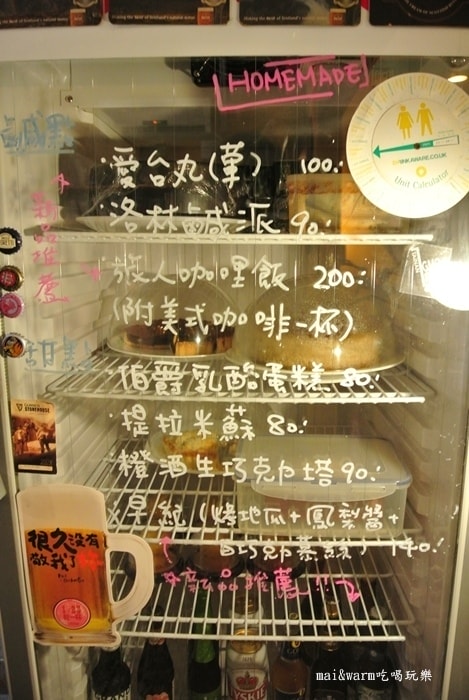 [HOMEMADE]
鹹點
愛台丸(葷) 100.
洛林鹹派 90.
新品推薦
旅人咖哩飯 200.
(附美式咖啡一杯)
甜點
伯爵乳酪蛋糕 80.
提拉米蘇 80.
橙酒生巧克力塔 90.
(烤地瓜+鳳梨醬+
白巧克慕絲) 140.
新品推薦!!
很久沒有
敬我了
DRINKAWARE.CO.UK
Unit Calculator
mai&warm吃喝玩樂